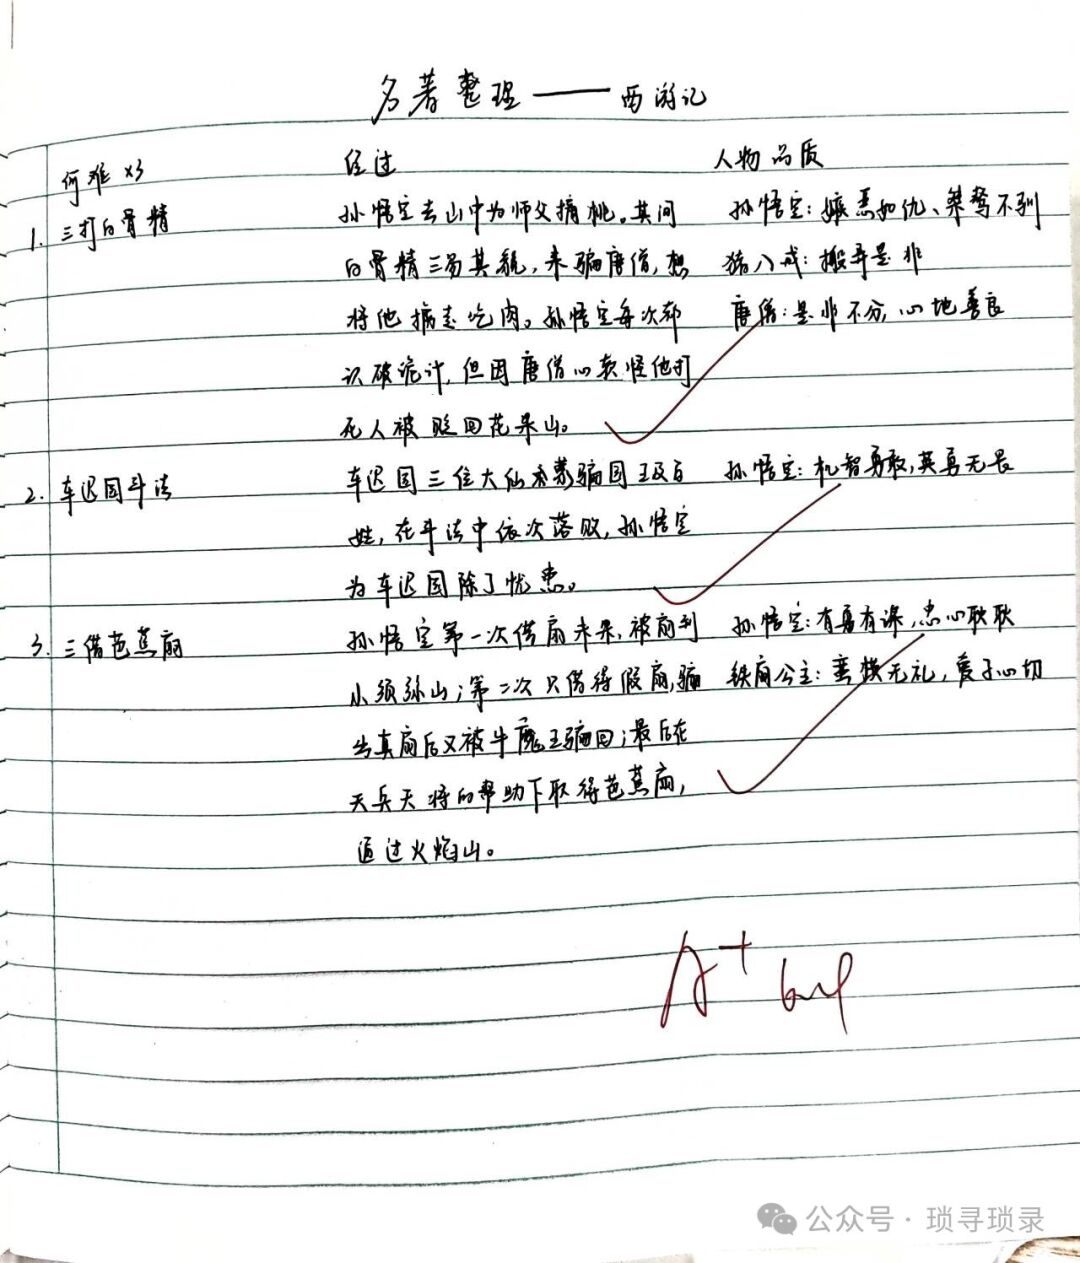 名著整理——西游记
何难 x3 经过 人物品质
1. 三打白骨精 孙悟空去山中为师父摘桃。其间 孙悟空：嫉恶如仇、桀骜不驯
白骨精三易其貌，来骗唐僧，想 猪八戒：搬弄是非
将他掳走吃肉。孙悟空每次都 唐僧：是非不分，心地善良
识破诡计，但因唐僧心软怪他打
死人被贬回花果山。
2. 车迟国斗法 车迟国三位大仙 骗国王及百 孙悟空：机智勇敢，英勇无畏
姓，在斗法中依次落败，孙悟空
为车迟国除了忧患。
3. 三借芭蕉扇 孙悟空第一次借扇未果，被扇到 孙悟空：有勇有谋，忠心耿耿
小须弥山；第二次只借得假扇，骗 铁扇公主：蛮横无礼，爱子心切
出真扇后又被牛魔王骗回；最后在
天兵天将的帮助下取得芭蕉扇，
通过火焰山。
A+
公众号·琐寻琐录